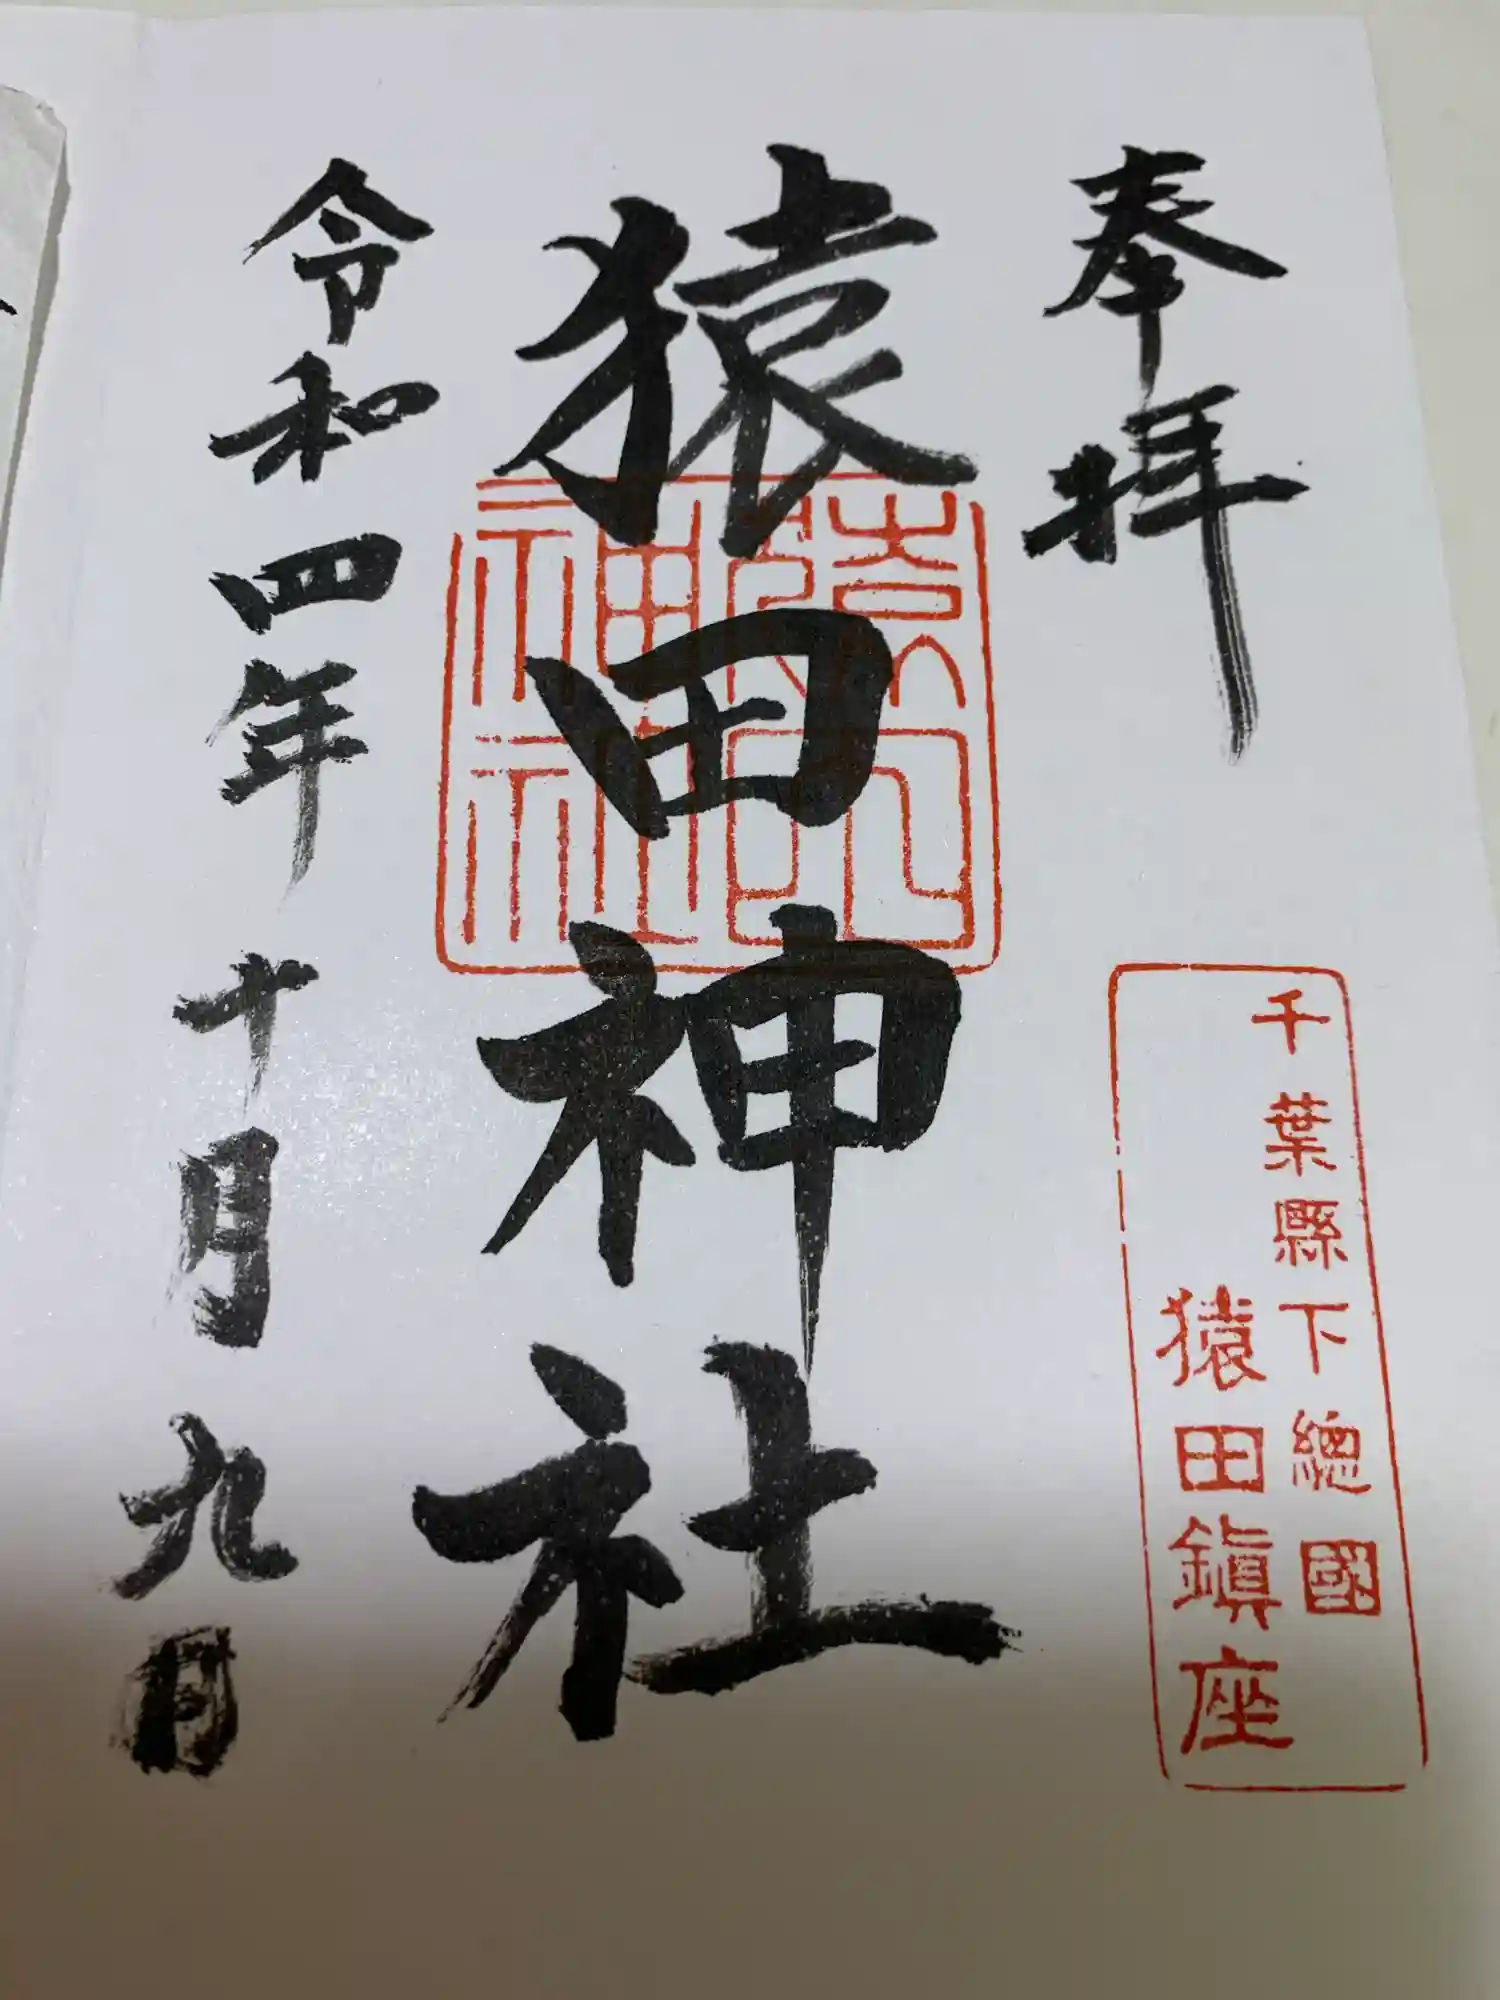 奉拝
千葉縣下總國
猿田鎭座
猿田神社
令和四年十月九日